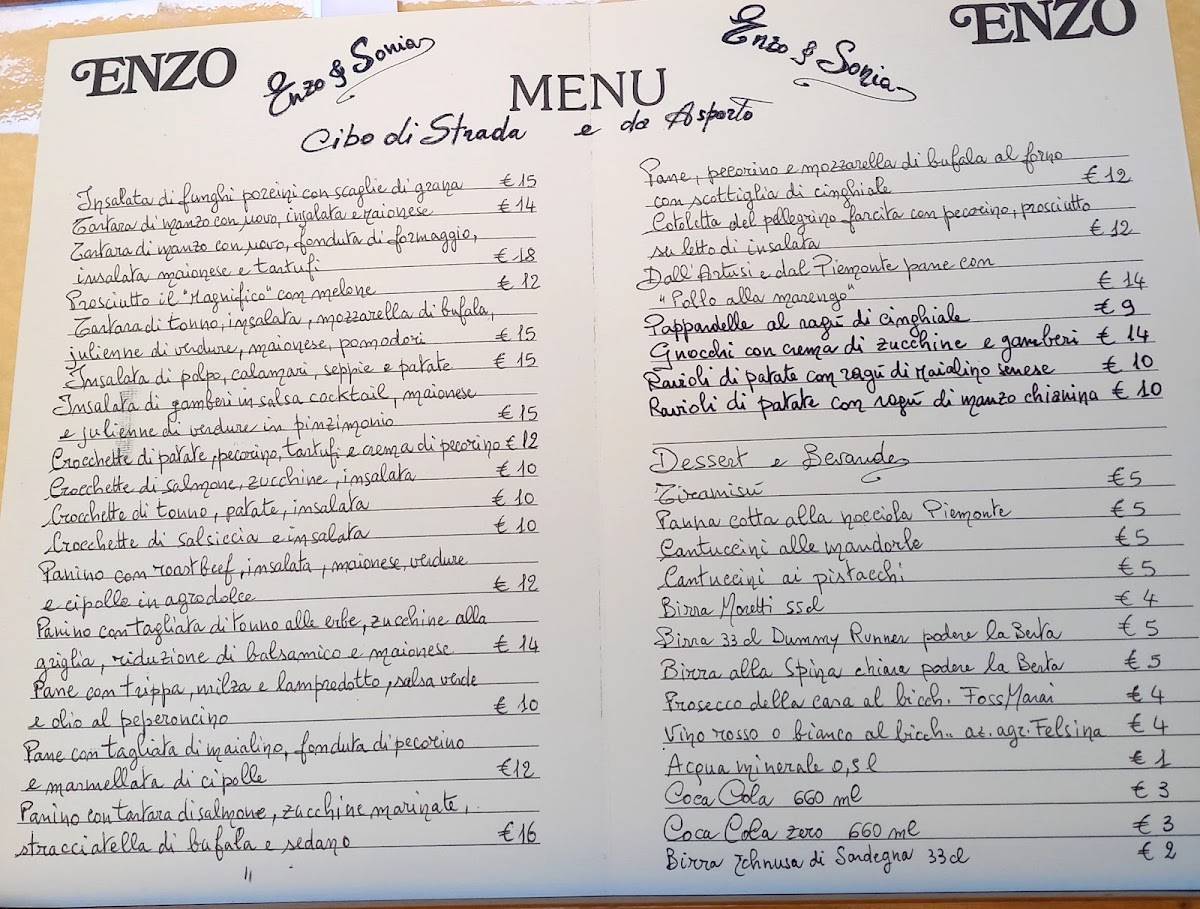 ENZO
Enzo & Sonia
MENU
Enzo & Sonia
ENZO
Cibo di Strada e da Asporto
Insalata di funghi porcini con scaglie di grana € 15
Tartara di manzo con uovo, insalata e maionese € 14
Tartara di manzo con uovo, fonduta di formaggio,
insalata maionese e tartufi € 18
Prosciutto il "Magnifico" con melone € 12
Tartara di tonno, insalata, mozzarella di bufala,
julienne di verdure, maionese, pomodori € 15
Insalata di polpo, calamari, seppie e patate € 15
Insalata di gamberi in salsa cocktail, maionese
e julienne di verdure in pinzimonio € 15
Crocchette di patate, pecorino, tartufi e crema di pecorino € 12
Crocchette di salmone, zucchine, insalata € 10
Crocchette di tonno, patate, insalata € 10
Crocchette di salsiccia e insalata € 10
Panino con roastbeef, insalata, maionese, verdure
e cipolle in agrodolce € 12
Panino con tagliata di tonno alle erbe, zucchine alla
griglia, riduzione di balsamico e maionese € 14
Pane con trippa, milza e lampredotto, salsa verde
e olio al peperoncino € 10
Pane con tagliata di maialino, fonduta di pecorino
e marmellata di cipolle €12
Panino con tartara di salmone, zucchine marinate,
stracciatella di bufala e sedano €16
Pane, pecorino e mozzarella di bufala al forno
con scottiglia di cinghiale € 12
Cotoletta del pellegrino farcita con pecorino, prosciutto
su letto di insalata € 12
Dall'Artusi e dal Piemonte pane con
"Pollo alla marengo" € 14
Pappardelle al ragù di cinghiale € 9
Gnocchi con crema di zucchine e gamberi € 14
Ravioli di patate con ragù di maialino senese € 10
Ravioli di patate con ragù di manzo chianina € 10
Dessert e Bevande
Tiramisù €5
Panna cotta alla nocciola Piemonte € 5
Cantuccini alle mandorle €5
Cantuccini ai pistacchi € 5
Birra Moretti 55cl € 4
Birra 33 cl Dummy Runner podere la Berta € 5
Birra alla Spina chiara podere la Berta € 5
Prosecco della casa al bicch. Foss Marai € 4
Vino rosso o bianco al bicch. az. agr. Felsina € 4
Acqua minerale 0,5 l € 1
Coca Cola 660 ml € 3
Coca Cola zero 660 ml € 3
Birra Ichnusa di Sardegna 33 cl € 2